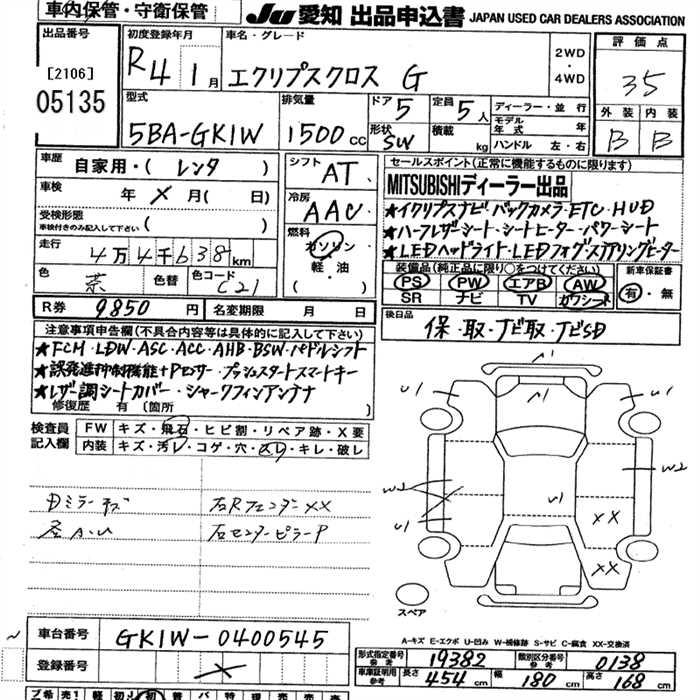 車内保管・守衛保管
JU 愛知 出品申込書 JAPAN USED CAR DEALERS ASSOCIATION
出品番号
[2106]
05135
初度登録年月
R4 1月
車名・グレード
エクリプスクロス G
2WD
・
4WD
評価点
35
外装 内装
B B
型式
5BA-GK1W
排気量
1500cc
ドア 5
形状 SW
定員 5人
積載 kg
ディーラー・並行
モデル年式 年
ハンドル 左・右
車歴
自家用・( レンタ )
シフト
AT
車検
年 × 月( 日)
受検形態
車検付きのみ記入して下さい ( )
冷房
AAC
走行
4万4千638km
燃料
ガソリン
軽・油
色 茶 色替
色コード C21
R券 9850円
名変期限 月 日
セールスポイント(正常に機能するものに限ります)
MITSUBISHIディーラー出品
★イクリプスナビ・バックカメラ・ETC・HUD
★ハーフレザーシート・シートヒーター・パワーシート
★LEDヘッドライト・LEDフォグ・ステアリングヒーター
装備品(純正品に限り○をつけてください)
PS PW エアB AW
SR ナビ TV ガワシート
新車保証書
有・無
後日品
保・取・ナビ取・ナビSD
注意事項申告欄(不具合内容等は具体的に記入して下さい)
★FCM・LDW・ASC・ACC・AHB・BSW・パドルシフト
★誤発進抑制機能+Pセンサー・プッシュスタートスマートキー
★レザー調シートカバー・シャークフィンアンテナ
修復歴 有 (箇所 )
検査員記入欄
FW キズ・飛石・ヒビ割・リペア跡・X要
内装 キズ・汚レ・コゲ・穴・スレ・キレ・破レ
Dミラーキズ
右Rフェンダー××
左A・U
右センターピラーP
U1
A1
U1
W2
W2
U1
U1
XX
XX
スペア
A-キズ E-エクボ U-凹み W-補修跡 S-サビ C-腐食 XX-交換済
車台番号
GK1W-0400545
登録番号
×
形式指定番号 参考 19382
類別区分番号 参考 0138
車庫証明用 参考
長さ 454cm
幅 180cm
高さ 168cm